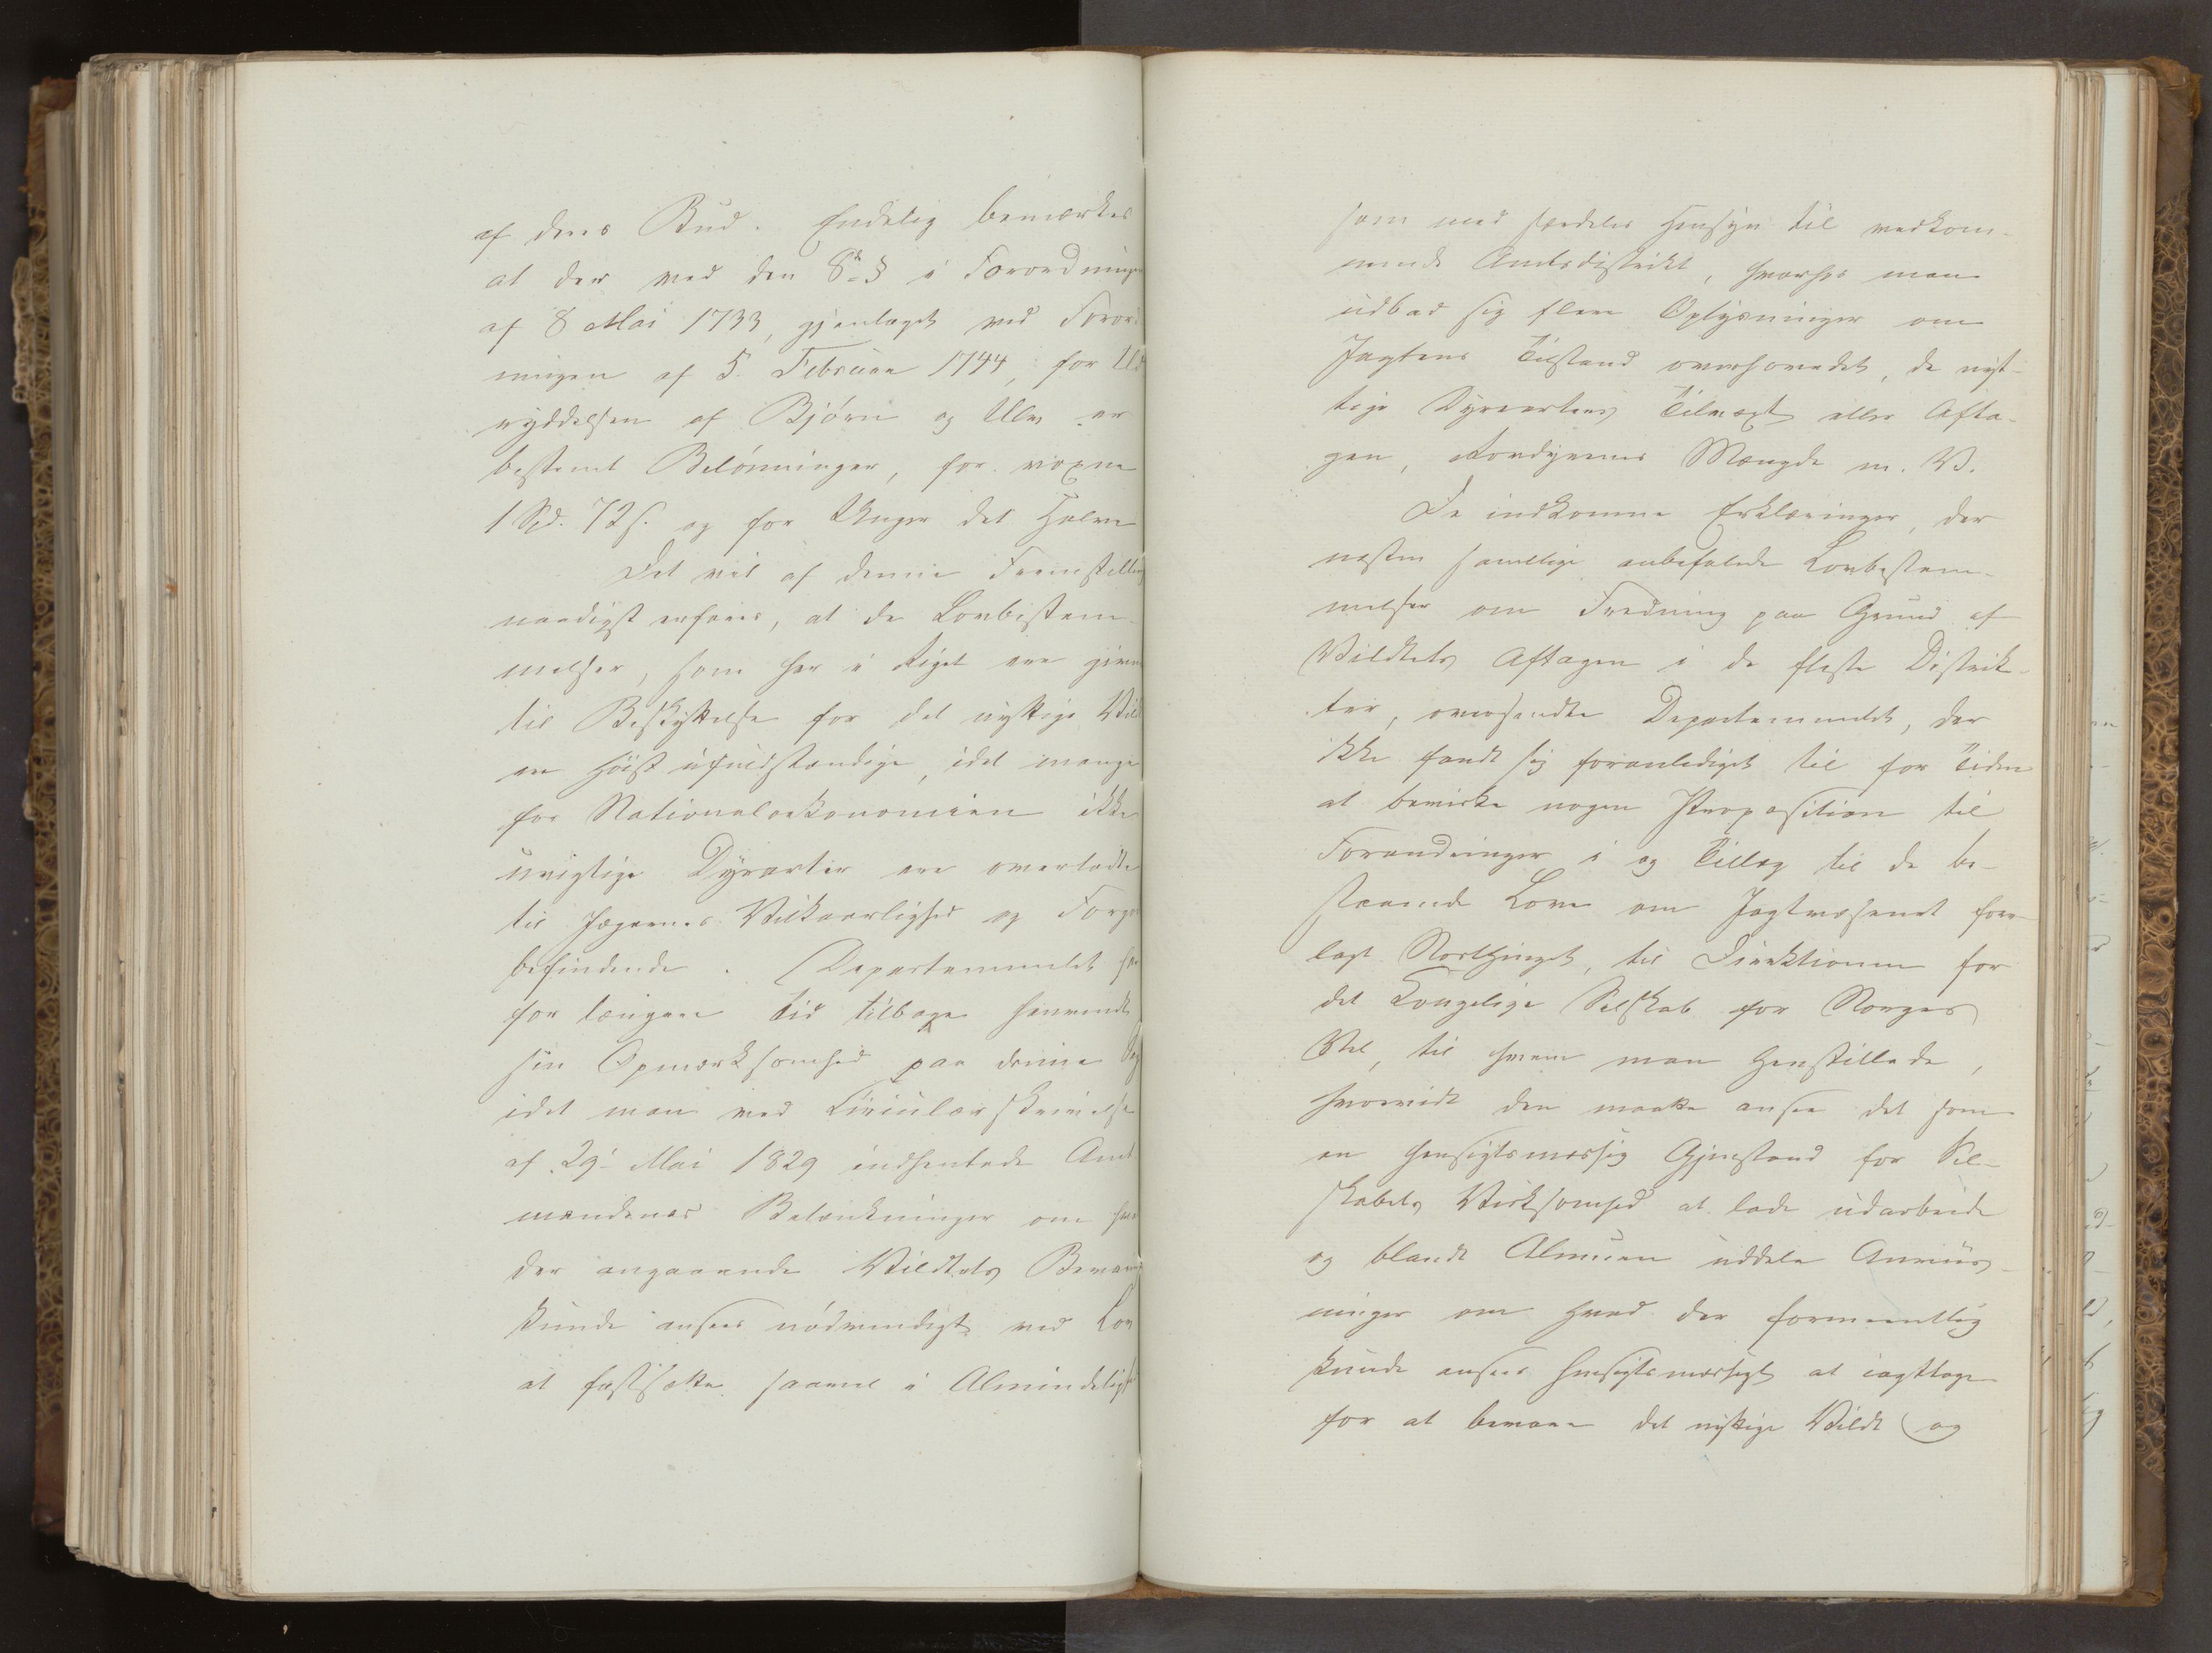 af deres Bud. Endelig bemærkes
at der ved den 8de § i Forordningen
af 8 Mai 1733, gjentaget ved Forord
ningen af 5. Februar 1744, for Ud
ryddelsen af Bjørn og Ulv er
bestemt Belønninger, for voxne
1 Spd. 72 s. og for Unger det Halve
Det vil af denne Fremstilling
naadigst erfares, at de Lovbestem-
melser, som her i Riget ere givne
til Beskyttelse for det nyttige Vildt
ere høist ufuldstændige, idet mange
for Nationaloekonomien ikke
uvigtige Dyrarter ere overladte
til Jægernes Vilkaarlighed og Forgodt
befindende. Departementet har
for længere Tid tilbage henvendt
sin Opmærksomhed paa denne Sag
idet man ved Circulærskrivelse
af 29de Mai 1829 indhentede Amt
mændenes Betænkninger om hvad
der angaaende Vildtets Bevaring
kunde ansees nødvendigt ved Lov
at fastsætte saavel i Almindelighed
som med særdeles Hensyn til vedkom-
mende Amtsdistrikt, hvorhos man
udbad sig flere Oplysninger om
Jagtens Tilstand overhovedet, de nyt-
tige Dyrearters Tilvæxt eller Afta-
gen, Rovdyrenes Mængde m. V.
De indkomne Erklæringer, der
næsten samtlige anbefalede Lovbestem-
melser om Fredning paa Grund af
Vildtets Aftagen i de fleste Distrik-
ter, oversendte Departementet, der
ikke fandt sig foranlediget til for Tiden
at bevirke nogen Proposition til
Forandringer i og Tillæg til de be-
staaende Love om Jagtvæsenet fore-
lagt Storthinget, til Direktionen for
det Kongelige Selskab for Norges
Vel, til hvem man henstillede,
hvorvidt den maatte ansee det som
en hensigtsmæssig Gjenstand for Sel-
skabets Virksomhed at lade udarbeide
og blandt Almuen uddele Anviis-
ninger om hvad der formeentlig
kunde ansees hensigtsmæssigt at iagttage
for at bevare det nyttige Vildt og